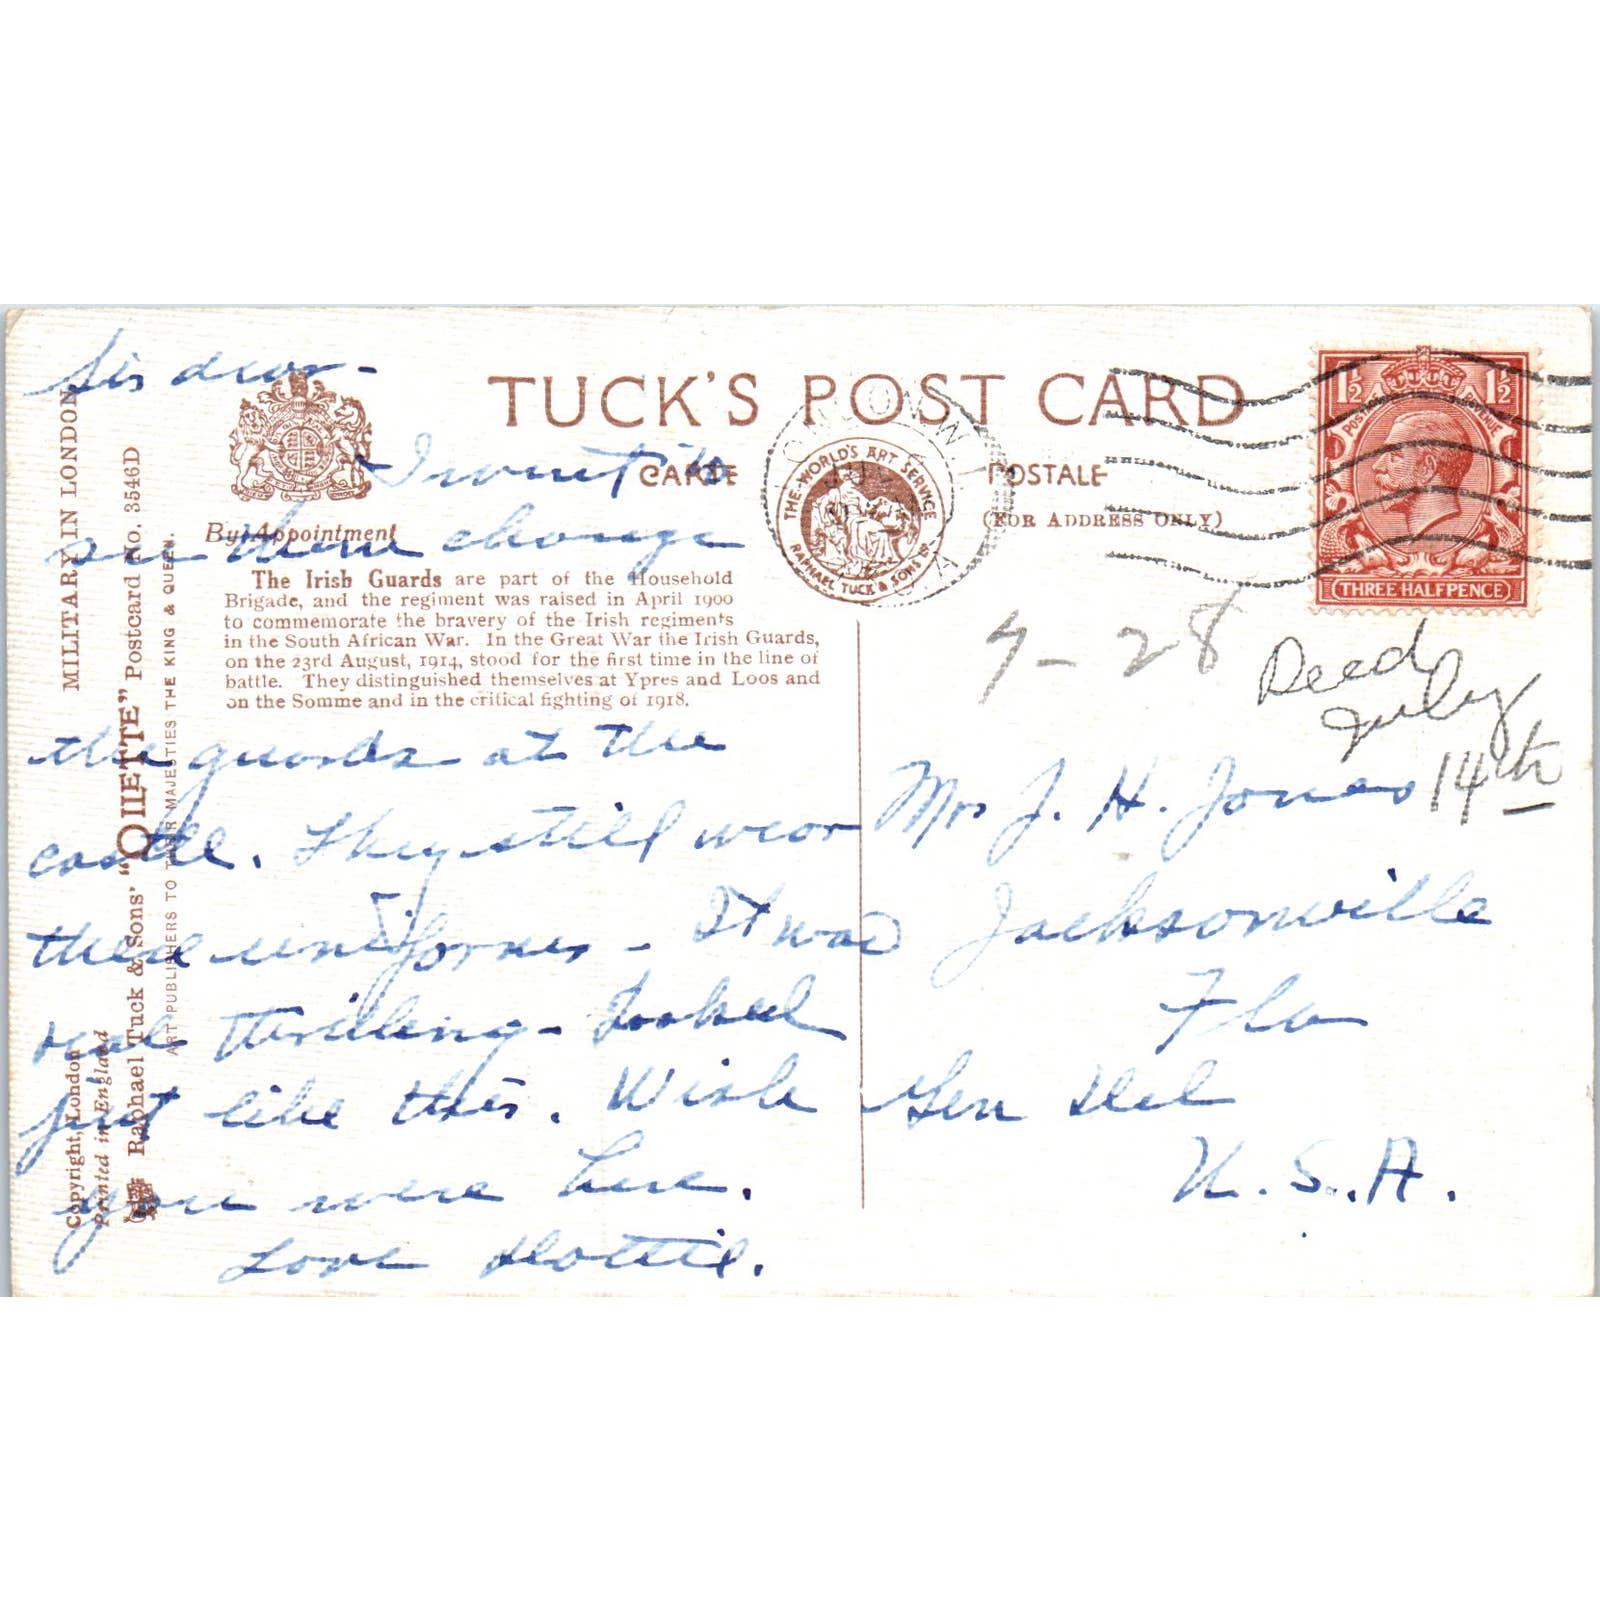 Sis dear-
I went to
see them change
the guards at the
castle. They still wear
these uniforms - It was
real thrilling - Looked
just like this. Wish
you were here.
Love Dottie.
TUCK'S POST CARD
CARTE POSTALE
(FOR ADDRESS ONLY)
By Appointment
The Irish Guards are part of the Household
Brigade, and the regiment was raised in April 1900
to commemorate the bravery of the Irish regiments
in the South African War. In the Great War the Irish Guards,
on the 23rd August, 1914, stood for the first time in the line of
battle. They distinguished themselves at Ypres and Loos and
on the Somme and in the critical fighting of 1918.
THE WORLD'S ART SERVICE
RAPHAEL TUCK & SONS LD
LONDON
1½ 1½
POSTAGE REVENUE
THREE HALFPENCE
7-28
Recd
July
14th
Mrs J. H. Jones
Jacksonville
Fla
Gen Del
U.S.A.
MILITARY IN LONDON
Raphael Tuck & Sons' "OILETTE" Postcard No. 3546D
ART PUBLISHERS TO THEIR MAJESTIES THE KING & QUEEN.
Copyright, London
Printed in England